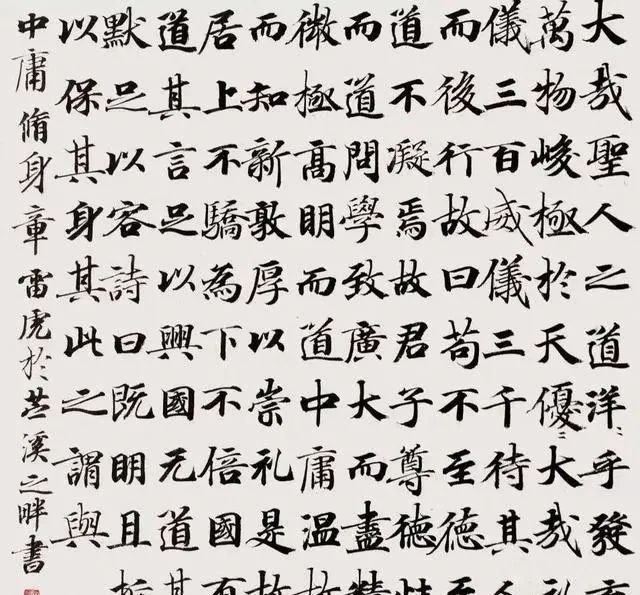 大哉聖人之道洋〻乎發育
萬物峻極於天優〻大哉礼
儀三百威儀三千待其人
而後行故曰苟不至德至
道不凝焉故君子尊德性
而道問學致廣大而盡精
微極高明而道中庸温故
而知新敦厚以崇礼是故
居上不驕為下不倍國有
道其言足以興國无道其
默足以容詩曰既明且哲
以保其身其此之謂與
中庸脩身章雷虎於溪之畔書